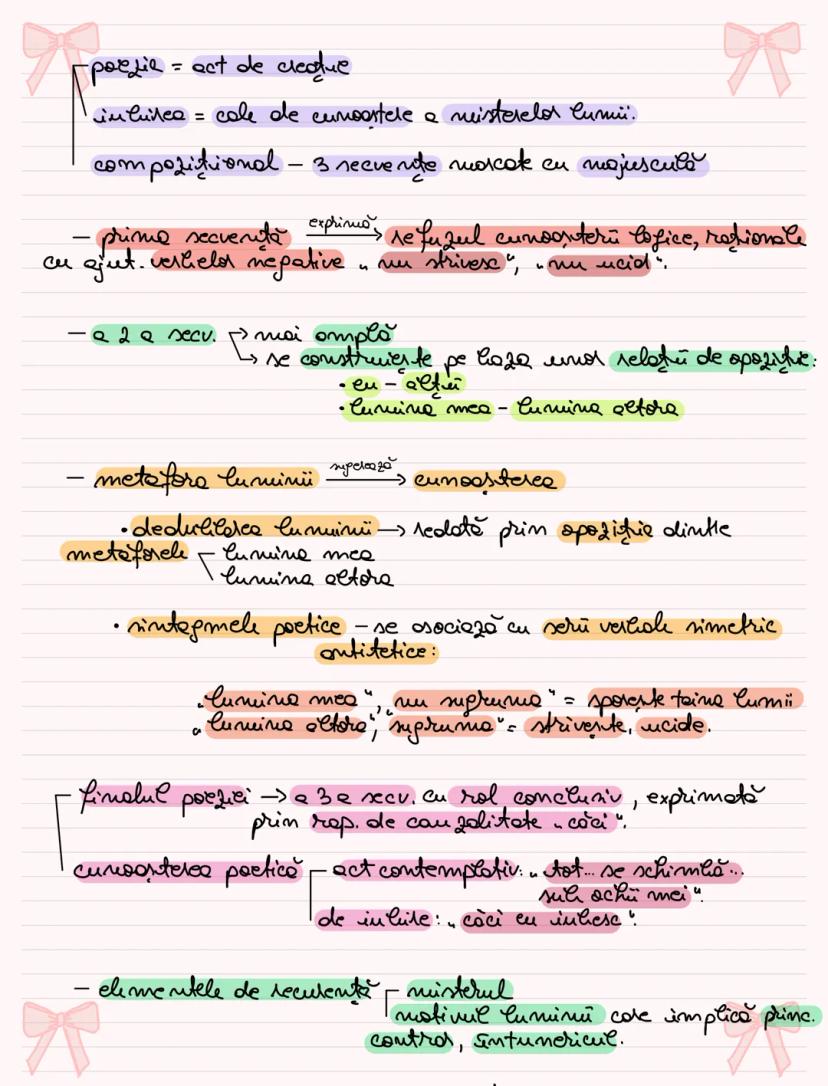 poezie = act de creație
iubirea = cale de cunoaștere a misterelor lumii.
compozițional – 3 secvențe marcate cu majusculă
– prima secvență exprimă → refuzul cunoașterii logice, raționale
cu ajut. verbelor negative „nu strivesc", „nu ucid".
– a 2 a secv. → mai amplă
→ se construiește pe baza unor relații de opoziție:
• eu – alții
• lumina mea – lumina altora
– metafora luminii sugerează → cunoașterea
• dedublarea luminii → redată prin opoziția dintre
metaforele lumina mea
lumina altora
• sintagmele poetice – se asociază cu serii verbale simetric
antitetice:
„lumina mea", „nu sugruma" = sporește taina lumii
„lumina altora", „sugruma" = strivește, ucide.
finalul poeziei → a 3 a secv. cu rol concluziv, exprimată
prin rap. de cauzalitate „căci".
cunoașterea poetică act contemplativ: „tot... se schimbă...
sub ochii mei".
de iubire: „căci eu iubesc".
– elementele de recurență misterul
motivul luminii care implică princ.
contrar, întunericul.